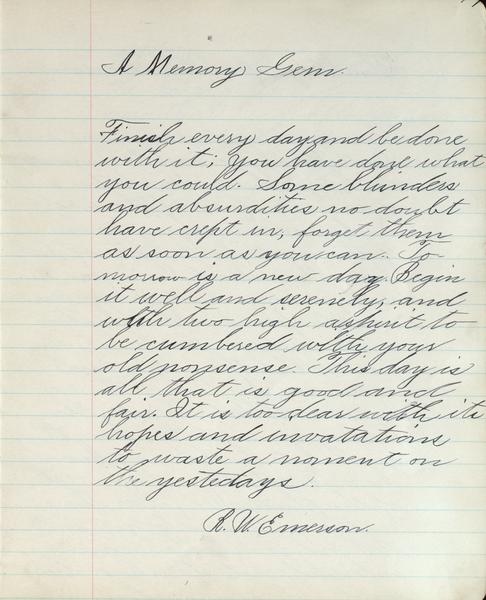 A Memory Gem.
Finish every day and be done
with it; you have done what
you could. Some blunders
and absurdities no doubt
have crept in, forget them
as soon as you can. To-
morrow is a new day. Begin
it well and serenely, and
with two high a spirit to
be cumbered with your
old nonsense. This day is
all that is good and
fair. It is too dear with its
hopes and invatations
to waste a moment on
the yestedays.
R. W. Emerson.